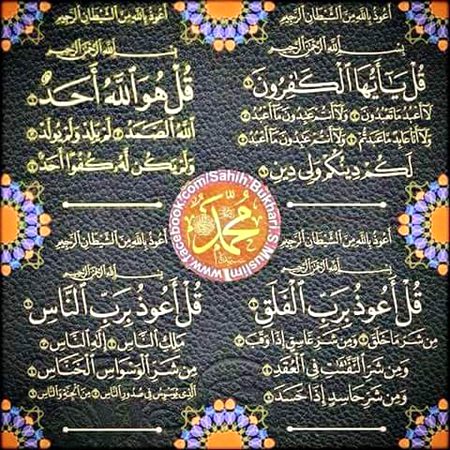 أعوذ بالله من الشيطان الرجيم
بسم الله الرحمن الرحيم
قُلْ يَا أَيُّهَا الْكَافِرُونَ
لَا أَعْبُدُ مَا تَعْبُدُونَ وَلَا أَنْتُمْ عَابِدُونَ مَا أَعْبُدُ
وَلَا أَنَا عَابِدٌ مَا عَبَدْتُمْ وَلَا أَنْتُمْ عَابِدُونَ مَا أَعْبُدُ
لَكُمْ دِينُكُمْ وَلِيَ دِينِ
أعوذ بالله من الشيطان الرجيم
بسم الله الرحمن الرحيم
قُلْ هُوَ اللَّهُ أَحَدٌ
اللَّهُ الصَّمَدُ لَمْ يَلِدْ وَلَمْ يُولَدْ
وَلَمْ يَكُنْ لَهُ كُفُوًا أَحَدٌ
www.facebook.com/Sahih.Bukhari.S.Muslim
محمد
أعوذ بالله من الشيطان الرجيم
بسم الله الرحمن الرحيم
قُلْ أَعُوذُ بِرَبِّ الْفَلَقِ
مِنْ شَرِّ مَا خَلَقَ وَمِنْ شَرِّ غَاسِقٍ إِذَا وَقَبَ
وَمِنْ شَرِّ النَّفَّاثَاتِ فِي الْعُقَدِ
وَمِنْ شَرِّ حَاسِدٍ إِذَا حَسَدَ
أعوذ بالله من الشيطان الرجيم
بسم الله الرحمن الرحيم
قُلْ أَعُوذُ بِرَبِّ النَّاسِ
مَلِكِ النَّاسِ إِلَهِ النَّاسِ
مِنْ شَرِّ الْوَسْوَاسِ الْخَنَّاسِ
الَّذِي يُوَسْوِسُ فِي صُدُورِ النَّاسِ مِنَ الْجِنَّةِ وَالنَّاسِ